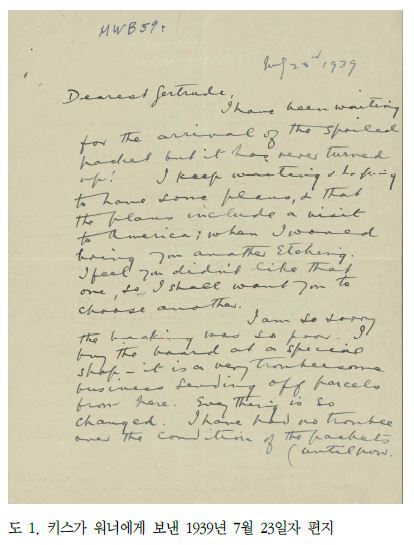 MWB59.
July 23rd 1939
Dearest Gertrude,
I have been waiting
for the arrival of the spoiled
packet but it has never turned
up! I keep waiting & hoping
to have some plans, & that
the plans include a visit
to America; when I would
bring you another Etching.
I feel you didn't like that
one, so I shall want you to
choose another.
I am so sorry
the backing was so poor. I
buy the board at a special
shop – it is a very troublesome
business sending off parcels
from here. Everything is so
changed. I have had no trouble
over the condition of the packets
(until now.
도 1. 키스가 워너에게 보낸 1939년 7월 23일자 편지